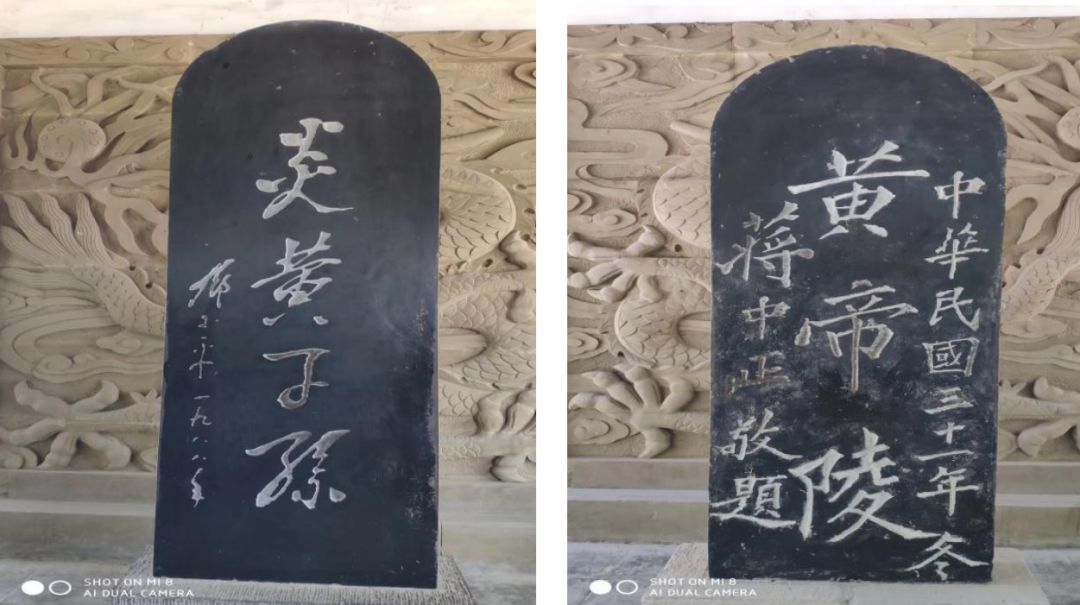 炎黄子孫
邓小平 一九八八年
中華民國三十一年冬
黄帝陵
蔣中正敬題
SHOT ON MI 8
AI DUAL CAMERA
SHOT ON MI 8
AI DUAL CAMERA